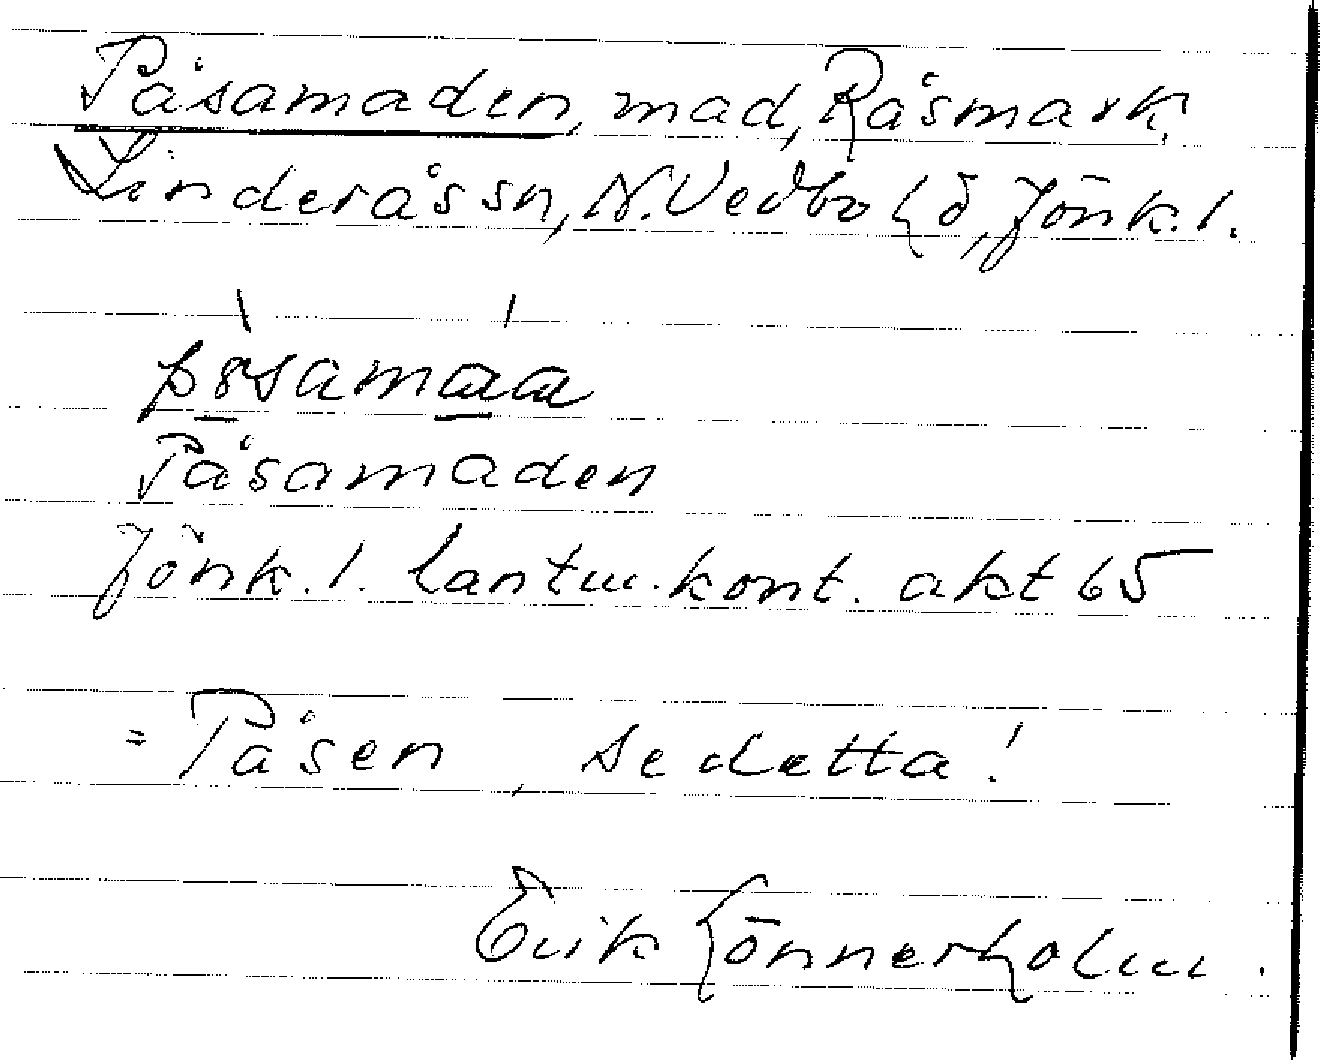 Påsamaden, mad, Råsmark
Linderås sn, N. Vedbo hd, Jönk. l.
Påsamaden
Jönk. l. lantm. kont. akt 65
= Påsen, se detta!
Erik